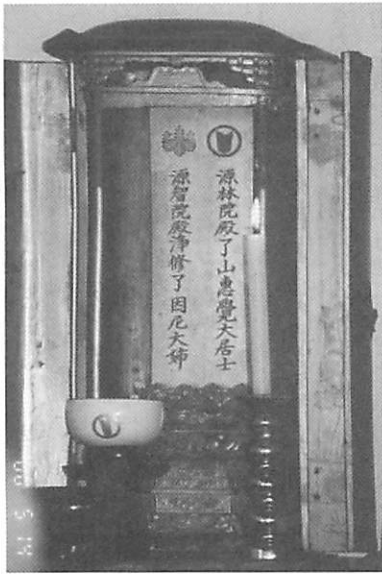 源林院殿了山惠覺大居士
源智院殿淨修了因尼大姉